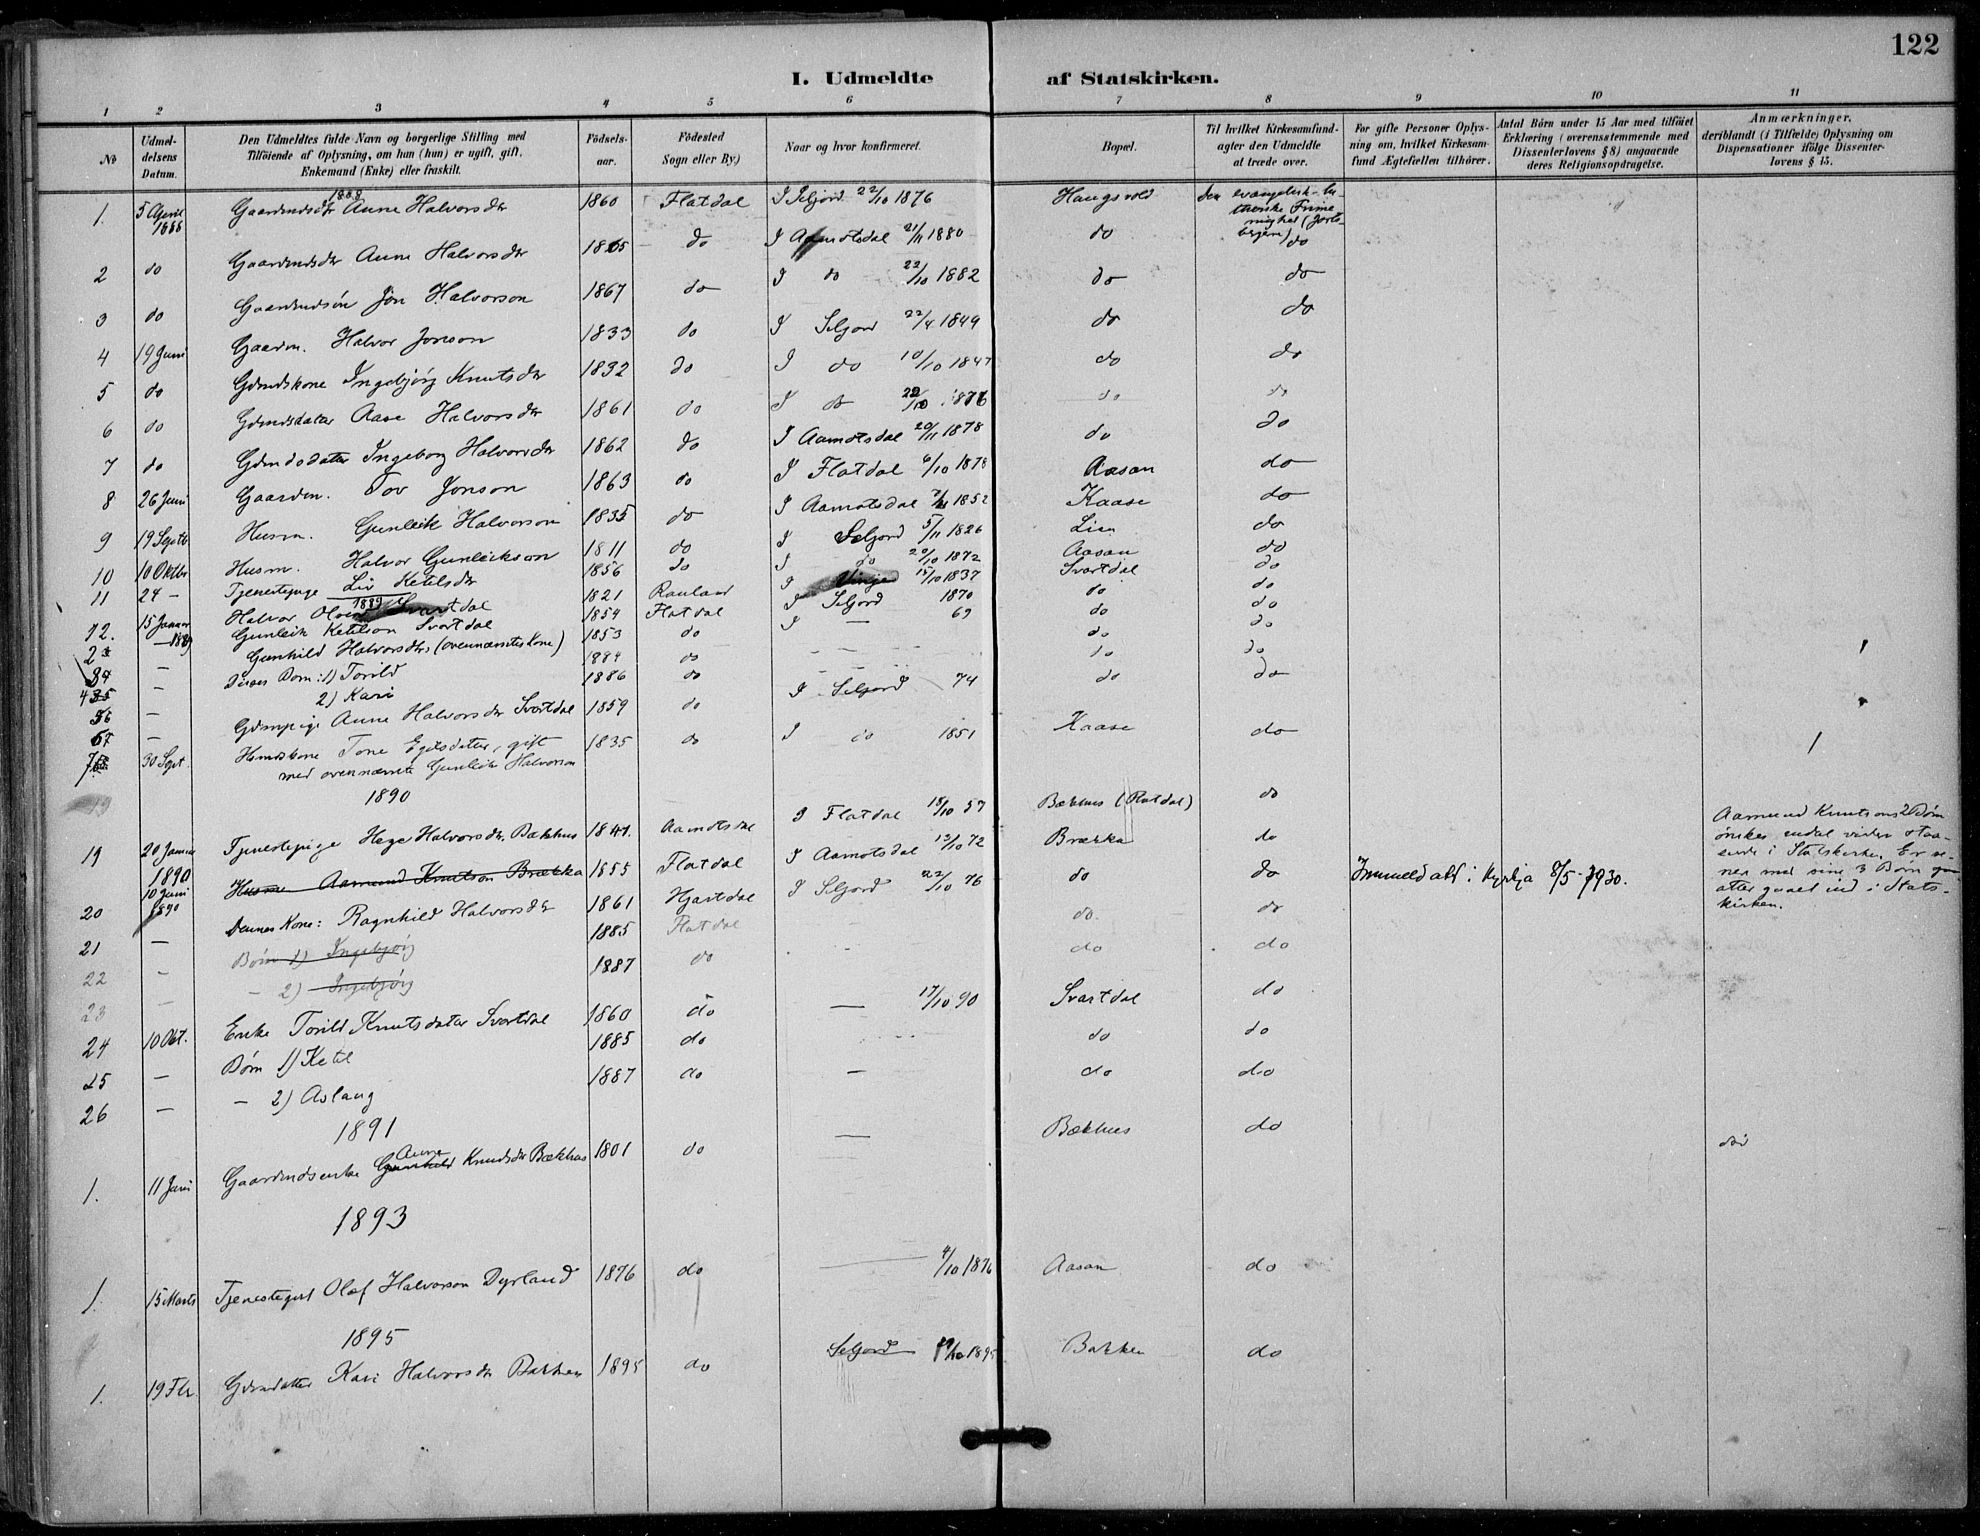 122
I. Udmeldte af Statskirken.
1 2 3 4 5 6 7 8 9 10 11
No
Udmel-
delsens
Datum.
Den Udmeldtes fulde Navn og borgerlige Stilling med
Tilföiende af Oplysning, om han (hun) er ugift, gift,
Enkemand (Enke) eller fraskilt.
Födsels-
aar.
Födested
Sogn eller By)
Naar og hvor konfirmeret.
Bopæl.
Til hvilket Kirkesamfund-
agter den Udmeldte
at træde over.
For gifte Personer Oplys-
ning om, hvilket Kirkesam-
fund Ægtefællen tilhörer.
Antal Börn under 15 Aar med tilföiet
Erklæring (overensstemmende med
Dissenterlovens § 8) angaaende
deres Religionsopdragelse.
Anmærkninger,
deriblandt (i Tilfælde) Oplysning om
Dispensationer ifölge Dissenter-
lovens § 15.
1888
1. 5 April 1888 Gaardmdsdtr Anne Halvorsdtr 1860 Flatdal I Seljord 22/10 1876 Haugsvold den evangelisk-lu-
therske Frime-
nighed
2 do Gaardmdsdtr Anne Halvorsdtr 1865 do I Aamotsdal 21/11 1880 do do
3 do Gaardmdsøn Jon Halvorson 1867 do I do 22/10 1882 do do
4 19 Juni Gaardm. Halvor Jonson 1833 do I Seljord 22/4 1849 do do
5 do Gdmdskone Ingebjørg Knutsdtr 1832 do I do 10/10 1847 do do
6 do Gdmdsdatter Aase Halvorsdtr 1861 do I do 1876 do do
7 do Gdmdsdatter Ingeborg Halvorsdtr 1862 do I Aamotsdal 20/11 1878 do do
8 26 Juni Gaardm. Tov Jonson 1863 do I Flatdal 6/10 1878 Aasan do
9 19 Septb Husm. Gunleik Halvorson 1835 do I Aamotsdal 1852 Kaase do
10 10 Oktbr Husm. Halvor Gunleikson 1811 do I Seljord 5/11 1826 Lien do
11 24 - Tjenestepige Liv Ketilsdtr 1856 do I do 20/10 1872 Aasan do
1889
12. 15 Januar 1889 Halvor Olson Svartdal 1821 Rauland I Vinje 15/10 1837 Svartdal do
Gunleik Ketilson Svartdal 1854 Flatdal I Seljord 1870 do do
Gunhild Halvorsdtr (ovennæmntes Kone) 1853 do I — 69 do do
— Disses Born: 1) Torild 1884 do - - do do
— 2) Kari 1886 do do do
— Gdmpige Anne Halvorsdtr Svartdal 1859 do I Seljord 74 do do
30 Sept. Husmdskone Tone Egilsdatter, gift 1835 do I do 1851 Kaase do
med ovennæmnte Gunleik Halvorson
1890
19 20 Januar 1890 Tjenestepige Hege Halvorsdtr. Bækhus 1841. Aamotsdal I Flatdal 18/10 57 Bækhus (Flatdal) do
20 10 Juni 1890 Husm Aamund Knutson Brækka 1855 Flatdal I Aamotsdal 13/10 72 Brækka do
21 — Dennes Kone: Ragnhild Halvorsdtr 1861 Hjartdal I Seljord 22/10 76 do do Innmeld att i kyrkja 8/5-1930.
22 - Børn 1) Ingebjørg 1885 Flatdal - do do
23 — — 2) Ingebjørg 1887 do - do do
24 10 Okt. Enke Torild Knutsdatter Svartdal 1860 do — 17/10 90 Svartdal do
25 — Børn 1) Ketil 1885 do do do
26 — — 2) Aslaug 1887 do — do do
Aamund Knutsons 2 Børn
ønskes endal videre staa-
ende i Statskirken. Er se-
ner med sine 3 Børn
atter gaaet ind i Stats-
kirken.
1891
1. 11 Juni Gaardmdsenke Gunhild Anne Knudsdtr Bækhus 1801 do — Bækhus do død
1893
1. 15 Marts Tjenestegut Olaf Halvorson Dyrland 1876 do — 4/10 1876 Aasan do
1895
1. 19 Fbr. Gdmdatter Kari Halvorsdtr Bakken 1895 do Seljord 1895 Bakken do